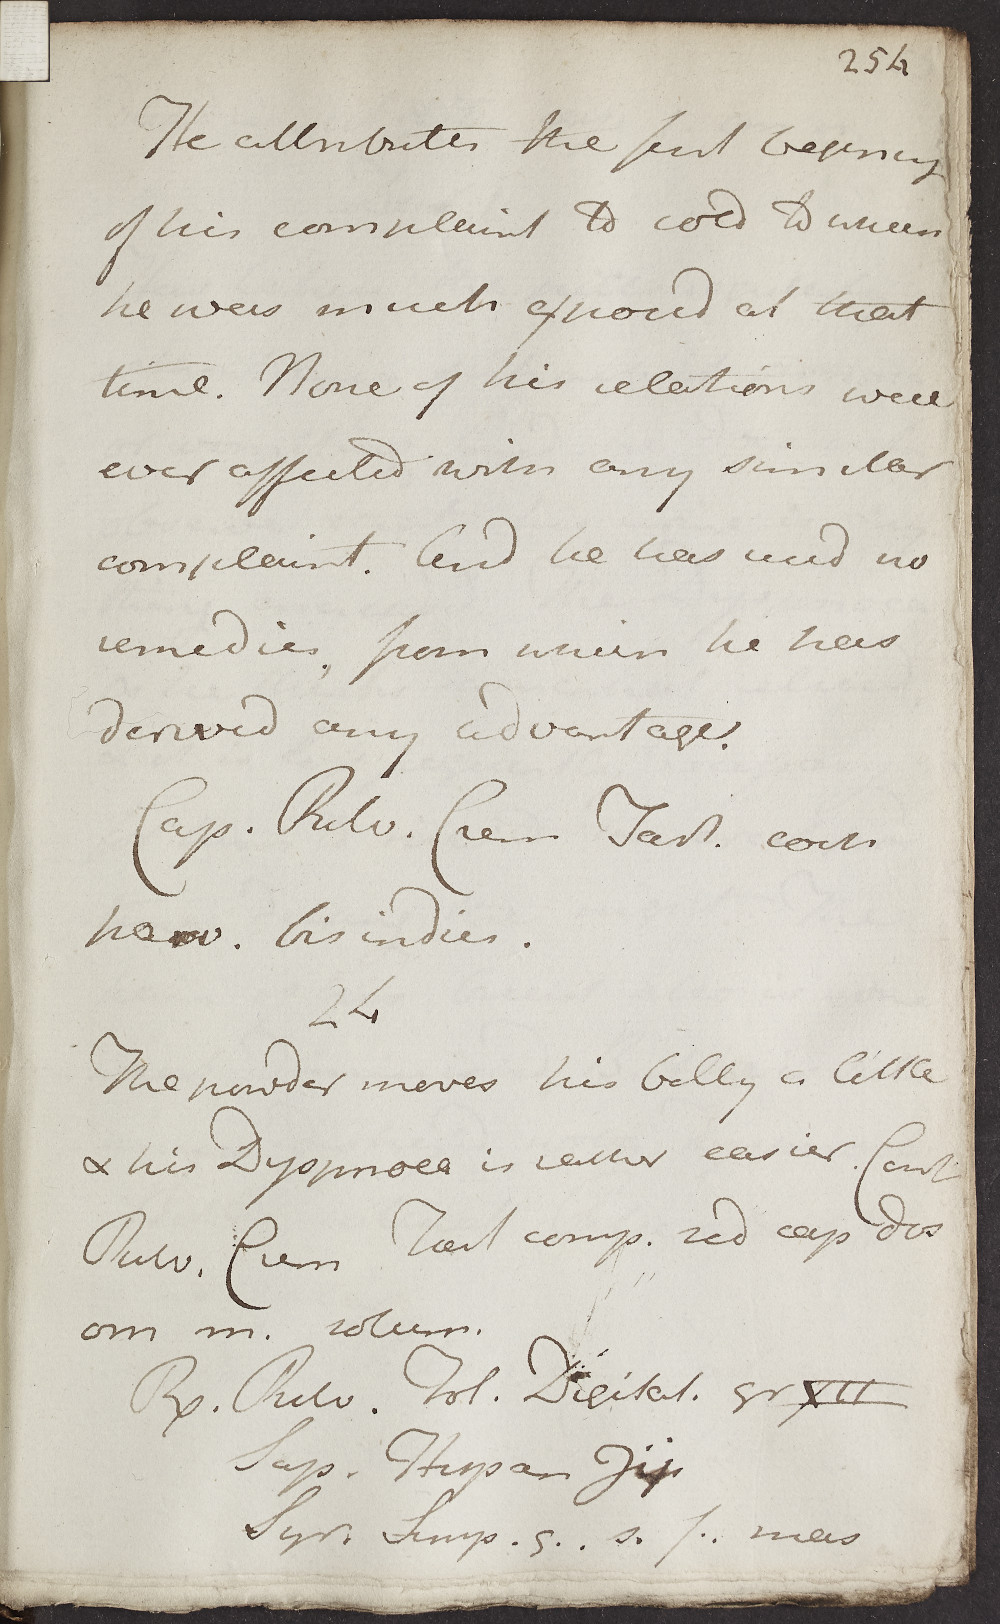 254
He attributes the first begining
of his complaint to cold to which
he was much exposed at that
time. None of his relations were
ever affected with any similar
complaint. And he has used no
remedies, from which he has
derived any advantage.
Cap. Pulv. Crem Tart. coch
bis indies.
24
The powder moves his belly a little
& his Dyspnoea is rather easier. Cont
Pulv. Crem Tart comp. sed cap dos
om m. solum.
Rx. Pulv. Fol. Digital. gr XII
Sap. Hispan ʒij
Syr. Simp. q. s. f. mas